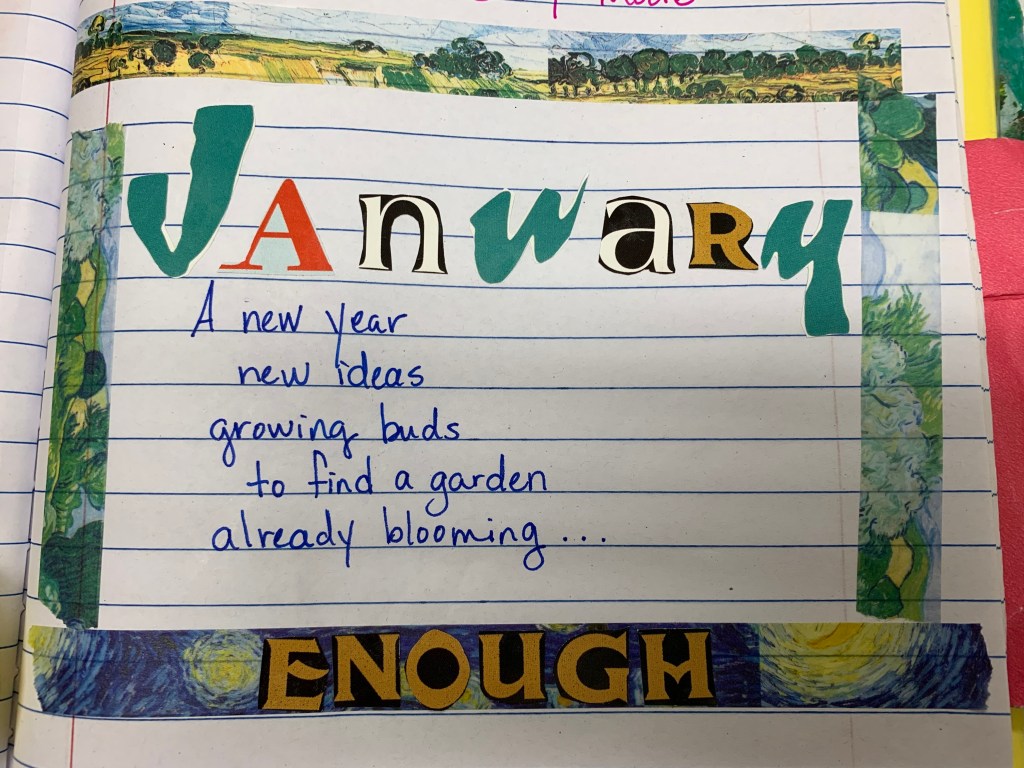 JAnuaRy
A new year
new ideas
growing buds
to find a garden
already blooming...
ENOUGH